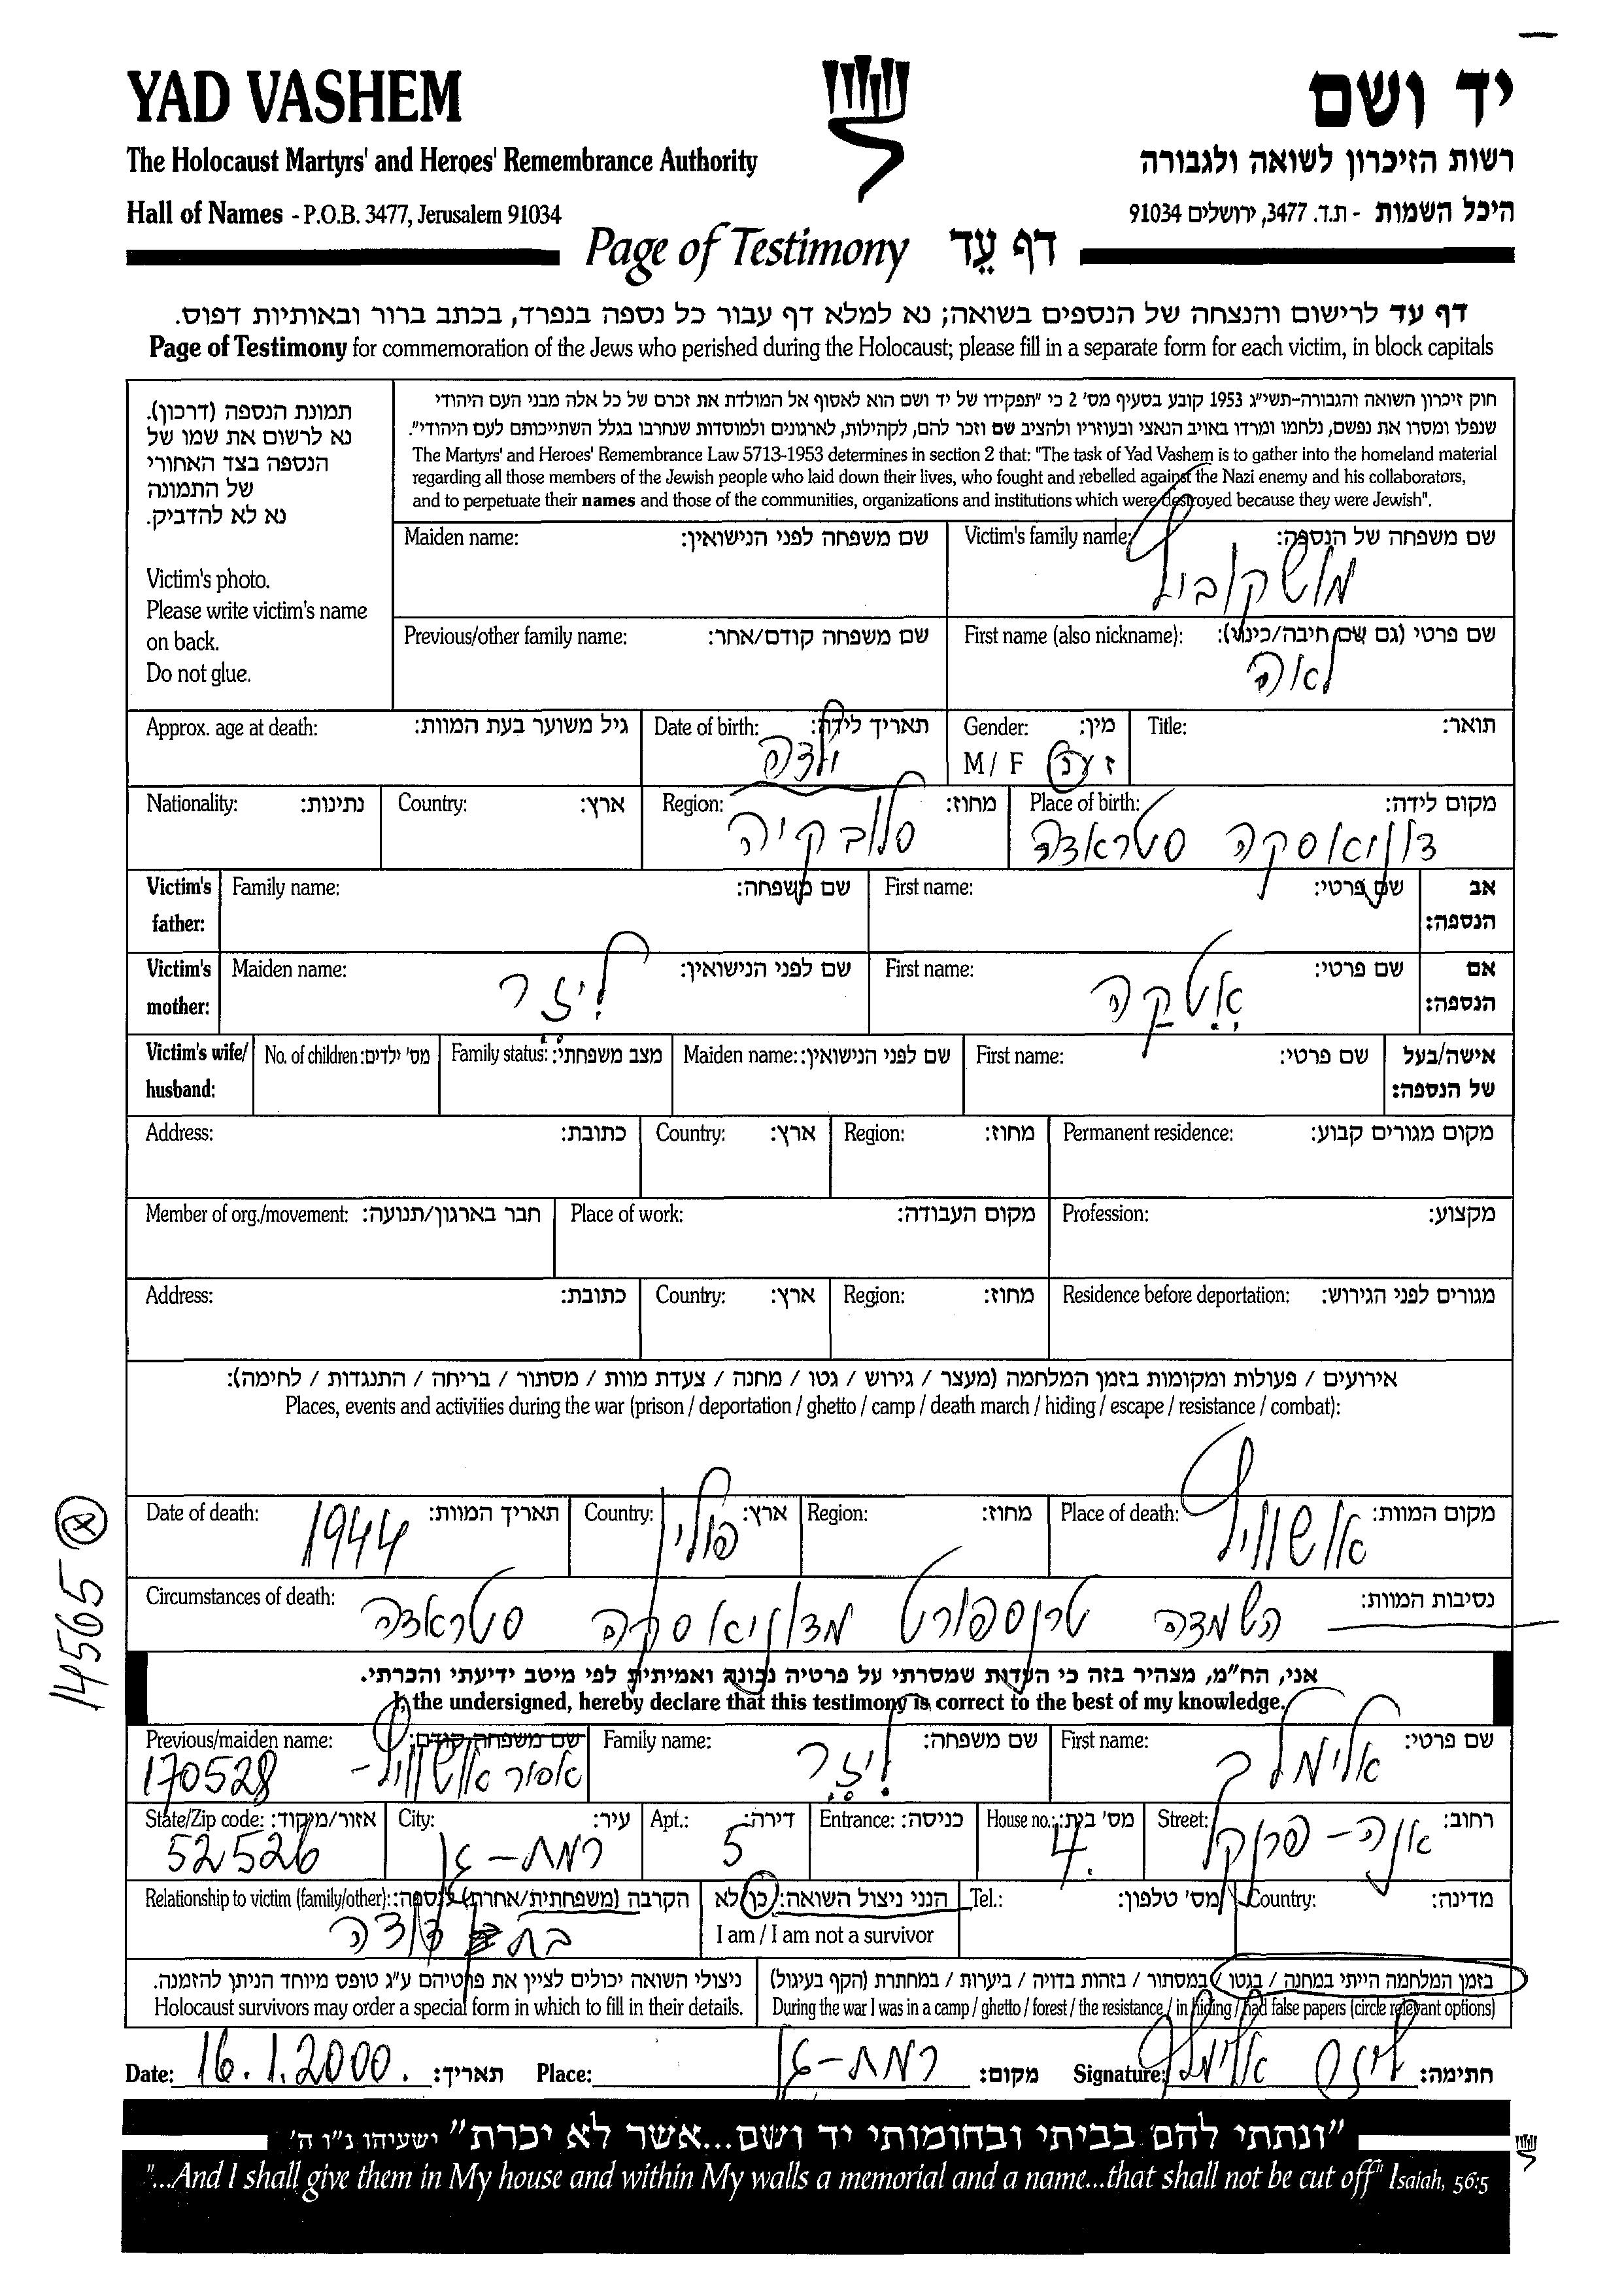 YAD VASHEM
יד ושם
The Holocaust Martyrs' and Heroes' Remembrance Authority
רשות הזיכרון לשואה ולגבורה
Hall of Names - P.O.B. 3477, Jerusalem 91034
היכל השמות - ת.ד. 3477, ירושלים 91034
Page of Testimony דף עֵד
דף עד לרישום והנצחה של הנספים בשואה; נא למלא דף עבור כל נספה בנפרד, בכתב ברור ובאותיות דפוס.
Page of Testimony for commemoration of the Jews who perished during the Holocaust; please fill in a separate form for each victim, in block capitals
תמונת הנספה (דרכון).
נא לרשום את שמו של
הנספה בצד האחורי
של התמונה
נא לא להדביק.
Victim's photo.
Please write victim's name
on back.
Do not glue.
חוק זיכרון השואה והגבורה-תשי"ג 1953 קובע בסעיף מס' 2 כי "תפקידו של יד ושם הוא לאסוף אל המולדת את זכרם של כל אלה מבני העם היהודי
שנפלו ומסרו את נפשם, נלחמו ומרדו באויב הנאצי ובעוזריו ולהציב שם וזכר להם, לקהילות, לארגונים ולמוסדות שנחרבו בגלל השתייכותם לעם היהודי".
The Martyrs' and Heroes' Remembrance Law 5713-1953 determines in section 2 that: "The task of Yad Vashem is to gather into the homeland material
regarding all those members of the Jewish people who laid down their lives, who fought and rebelled against the Nazi enemy and his collaborators,
and to perpetuate their names and those of the communities, organizations and institutions which were destroyed because they were Jewish".
שם משפחה של הנספה: Victim's family name:
מושקוביץ
שם משפחה לפני הנישואין: Maiden name:
שם פרטי (גם שם חיבה/כינוי): First name (also nickname):
לאה
שם משפחה קודם/אחר: Previous/other family name:
תואר: Title:
מין: Gender:
ז / נ M / F
תאריך לידה: Date of birth:
ילדה
גיל משוער בעת המוות: Approx. age at death:
מקום לידה: Place of birth:
דונויאסקה סטראדה
מחוז: Region:
סלובקיה
ארץ: Country:
נתינות: Nationality:
אב הנספה: Victim's father:
שם פרטי: First name:
שם משפחה: Family name:
אם הנספה: Victim's mother:
שם פרטי: First name:
אֶטקה
שם לפני הנישואין: Maiden name:
ליזר
אישה/בעל של הנספה: Victim's wife/ husband:
שם פרטי: First name:
שם לפני הנישואין: Maiden name:
מצב משפחתי: Family status:
מס' ילדים: No. of children:
מקום מגורים קבוע: Permanent residence:
מחוז: Region:
ארץ: Country:
כתובת: Address:
מקצוע: Profession:
מקום העבודה: Place of work:
חבר בארגון/תנועה: Member of org./movement:
מגורים לפני הגירוש: Residence before deportation:
מחוז: Region:
ארץ: Country:
כתובת: Address:
אירועים / פעולות ומקומות בזמן המלחמה (מעצר / גירוש / גטו / מחנה / צעדת מוות / מסתור / בריחה / התנגדות / לחימה):
Places, events and activities during the war (prison / deportation / ghetto / camp / death march / hiding / escape / resistance / combat):
מקום המוות: Place of death:
אושוויץ
מחוז: Region:
ארץ: Country:
פולין
תאריך המוות: Date of death:
1944
נסיבות המוות: Circumstances of death:
השמדה טרנספורט מדונויאסקה סטראדה
14565
אני, הח"מ, מצהיר בזה כי העדות שמסרתי על פרטיה נכונה ואמיתית לפי מיטב ידיעתי והכרתי.
I, the undersigned, hereby declare that this testimony is correct to the best of my knowledge.
שם פרטי: First name:
אלימלך
שם משפחה: Family name:
ליזר
שם משפחה קודם: Previous/maiden name:
אסור אושוויץ-
170528
רחוב: Street:
אנה-פרנק
מס' בית: House no.:
4.
כניסה: Entrance:
דירה: Apt.:
5
עיר: City:
רמת-גן
אזור/מיקוד: State/Zip code:
52526
מדינה: Country:
מס' טלפון: Tel.:
הנני ניצול השואה: כן לא
I am / I am not a survivor
הקרבה (משפחתית/אחרת) לנספה: Relationship to victim (family/other):
בת דודה
בזמן המלחמה הייתי במחנה / בגטו / במסתור / בזהות בדויה / ביערות / במחתרת (הקף בעיגול)
During the war I was in a camp / ghetto / forest / the resistance / in hiding / had false papers (circle relevant options)
ניצולי השואה יכולים לציין את פרטיהם ע"ג טופס מיוחד הניתן להזמנה.
Holocaust survivors may order a special form in which to fill in their details.
חתימה: ליזר אלימלך Signature:
מקום: רמת-גן Place:
תאריך: 16.1.2000. Date:
"ונתתי להם בביתי ובחומותי יד ושם...אשר לא יכרת" ישעיהו נ"ו ה'
"...And I shall give them in My house and within My walls a memorial and a name...that shall not be cut off" Isaiah, 56:5